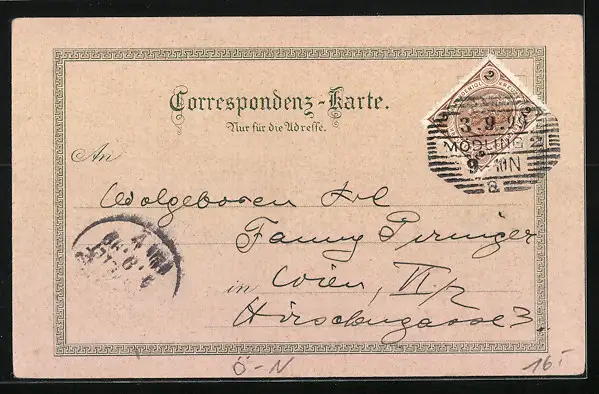 Correspondenz-Karte.
Nur für die Adresse.
3 9 98
MÖDLING 2
9- 10N
a
An
Wolgeboren Frl
Fanny Pirninger
in Wien, VI/2
Hirschengasse 3.
WIEN
Ö-N
16.-